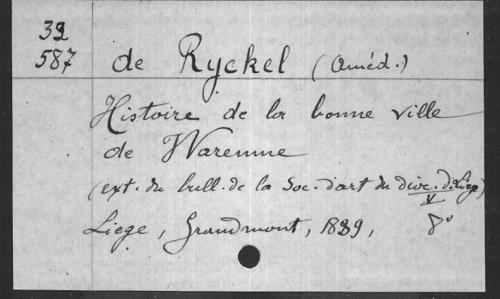 32
587
de Ryckel (Améd.)
Histoire de la bonne ville
de Waremme
(ext. du bull. de la Soc. d'art du dioc. d. Liége)
V
Liege, Grandmont, 1889, 8°